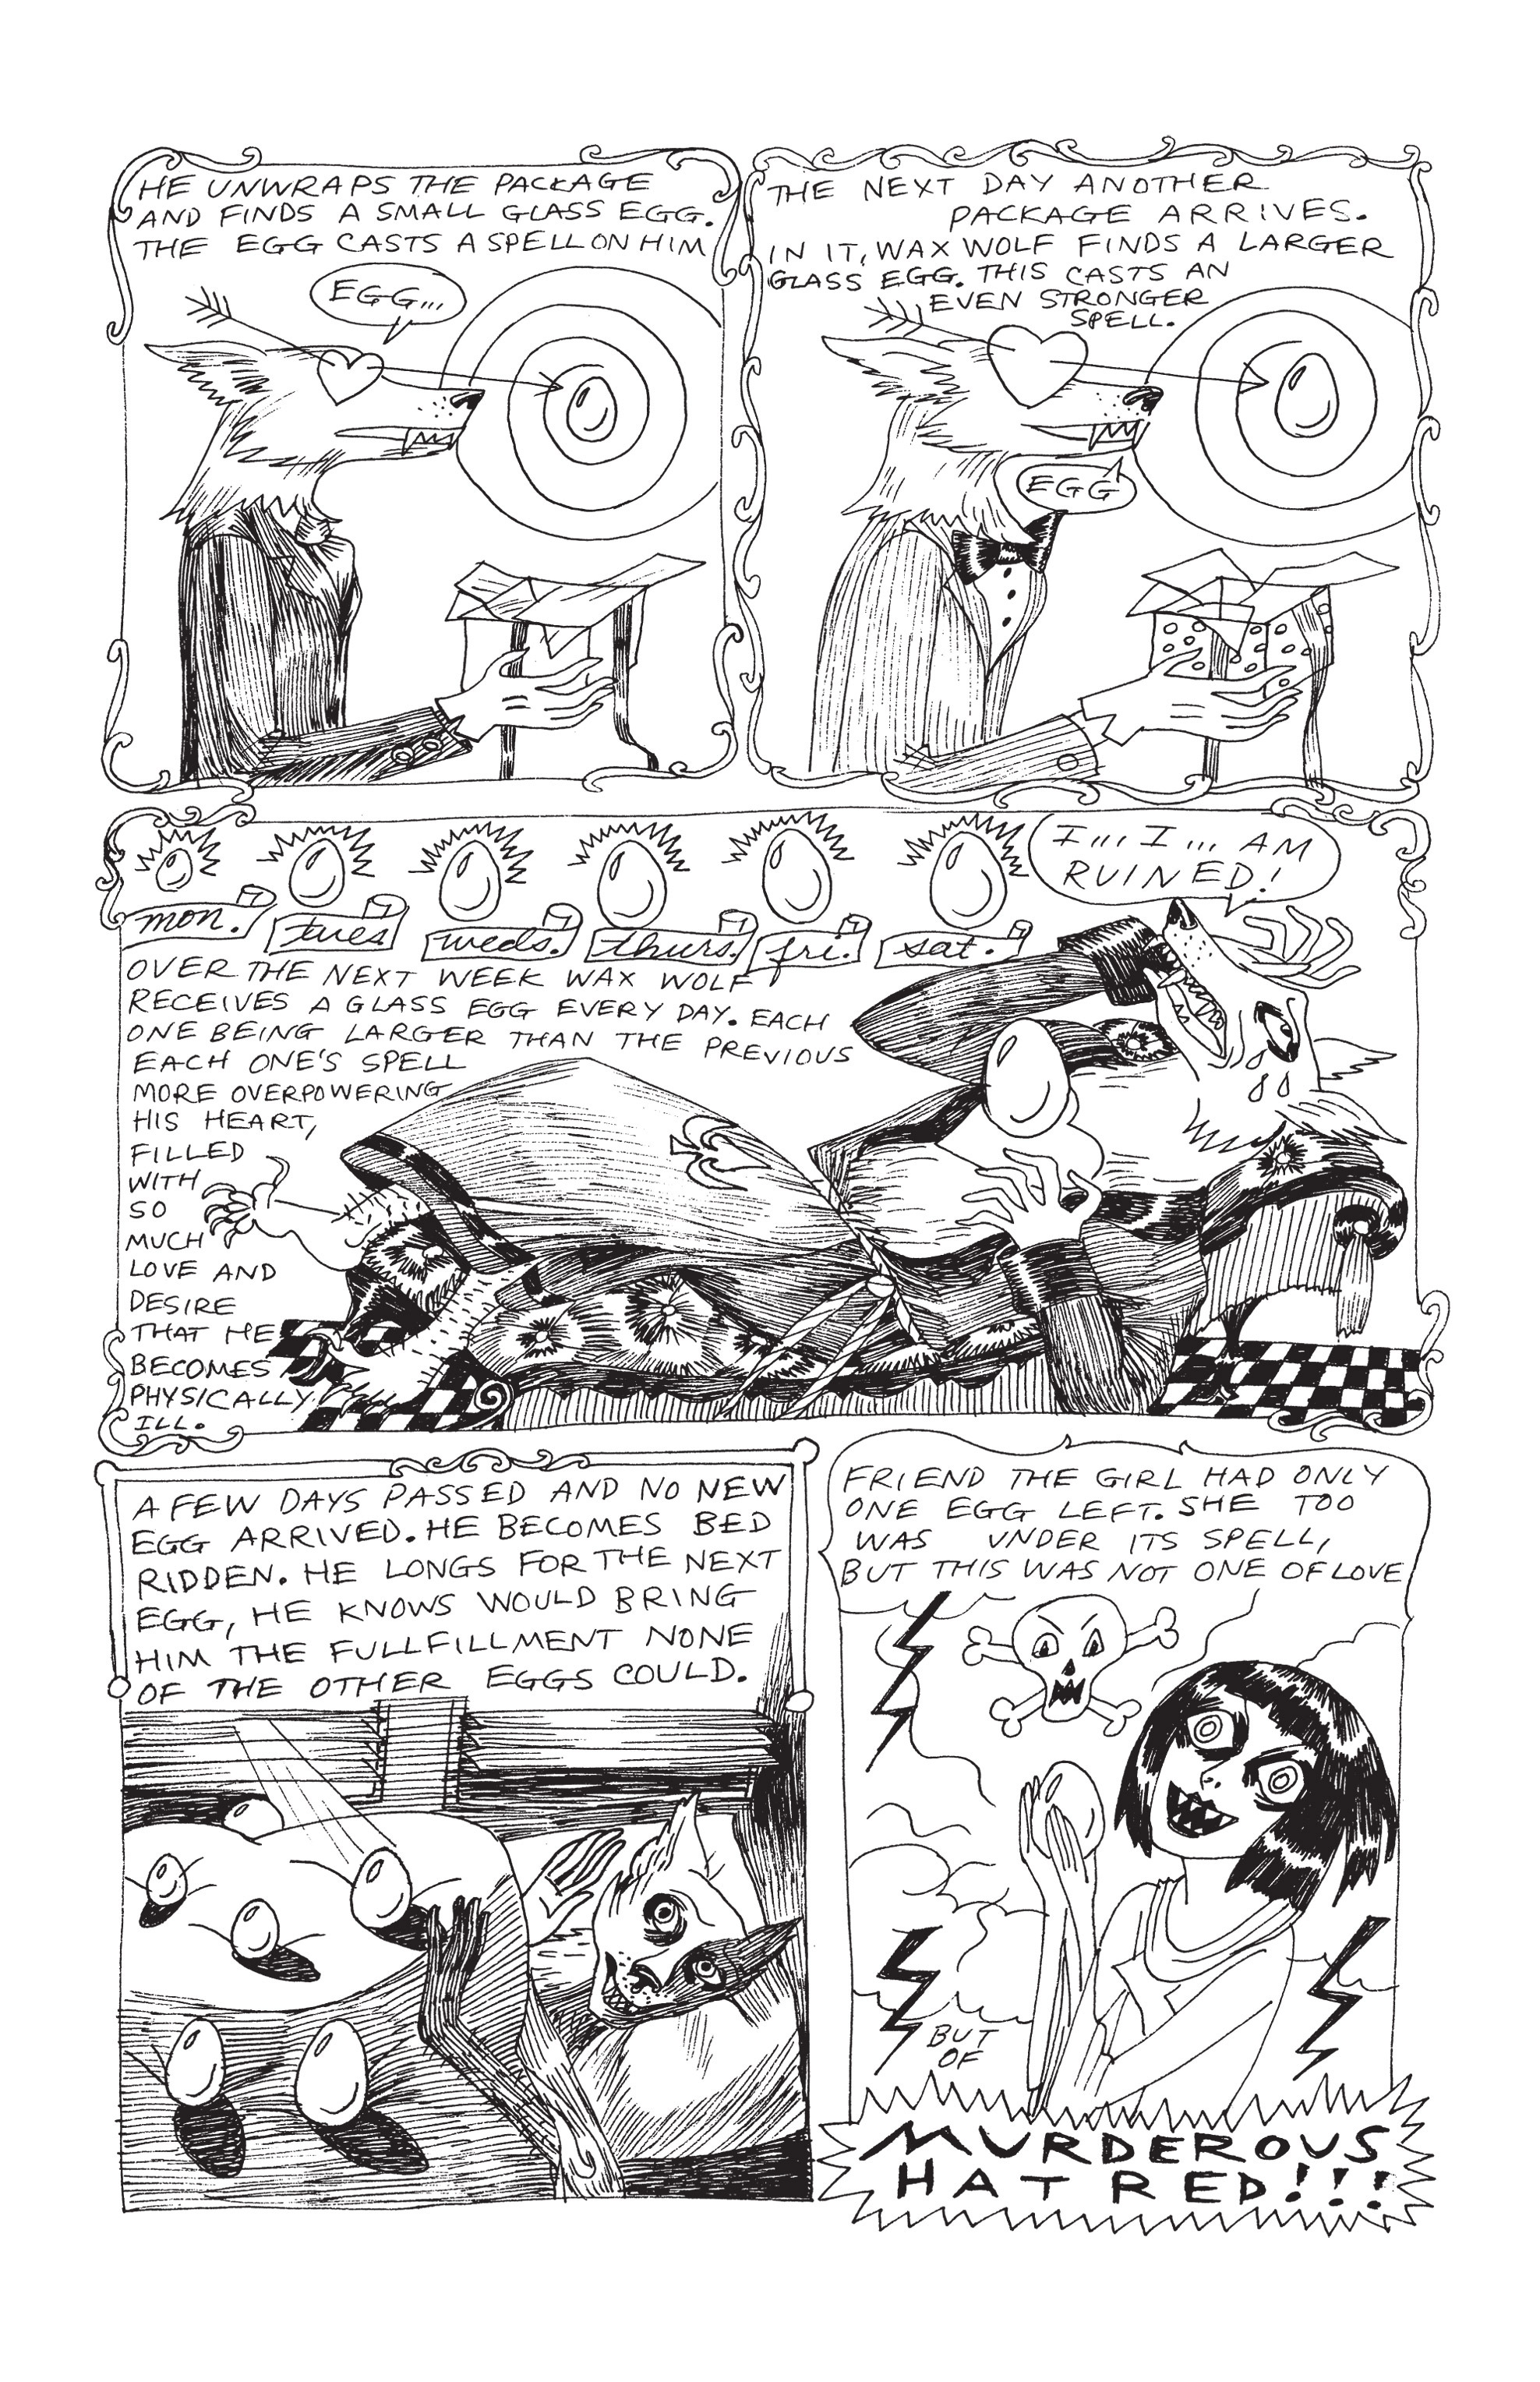 HE UNWRAPS THE PACKAGE
AND FINDS A SMALL GLASS EGG.
THE EGG CASTS A SPELL ON HIM
EGG...
THE NEXT DAY ANOTHER
PACKAGE ARRIVES.
IN IT, WAX WOLF FINDS A LARGER
GLASS EGG. THIS CASTS AN
EVEN STRONGER
SPELL.
EGG
mon.
tues
weds.
thurs.
fri.
sat.
I... I... AM
RUINED!
OVER THE NEXT WEEK WAX WOLF
RECEIVES A GLASS EGG EVERY DAY. EACH
ONE BEING LARGER THAN THE PREVIOUS
EACH ONE'S SPELL
MORE OVERPOWERING
HIS HEART,
FILLED
WITH
SO
MUCH
LOVE AND
DESIRE
THAT HE
BECOMES
PHYSICALLY
ILL.
A FEW DAYS PASSED AND NO NEW
EGG ARRIVED. HE BECOMES BED
RIDDEN. HE LONGS FOR THE NEXT
EGG, HE KNOWS WOULD BRING
HIM THE FULLFILLMENT NONE
OF THE OTHER EGGS COULD.
FRIEND THE GIRL HAD ONLY
ONE EGG LEFT. SHE TOO
WAS UNDER ITS SPELL,
BUT THIS WAS NOT ONE OF LOVE
BUT
OF
MURDEROUS
HATRED!!!